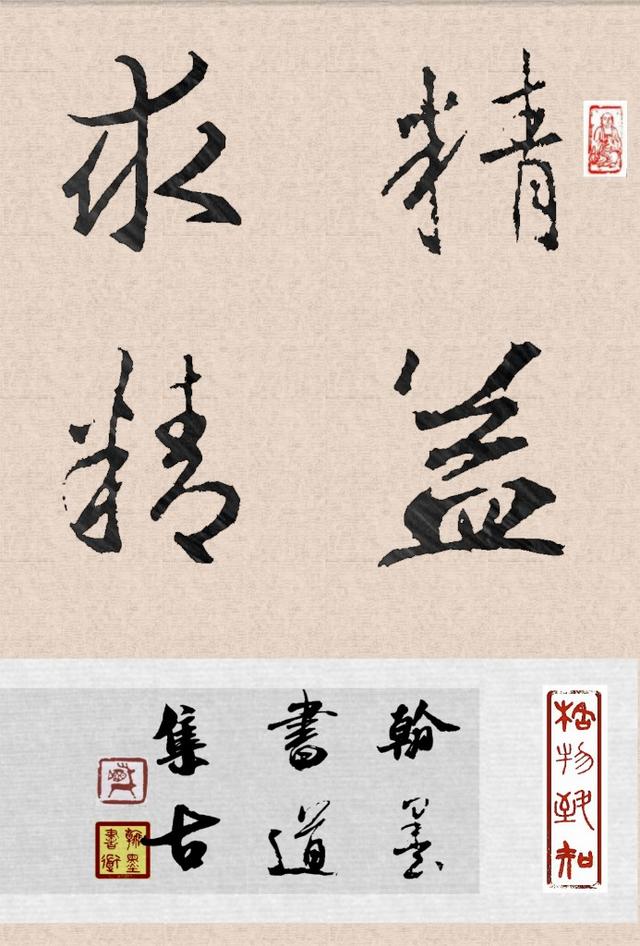 精益
求精
格物致知
翰墨
書道
集古
翰墨
書